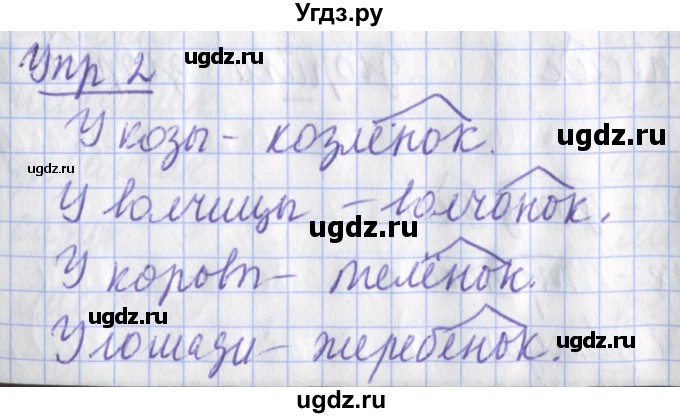 Угдз.ру
Упр 2
ugdz.ru
ugdz.ru
У козы - козлёнок.
ugdz.ru
ugdz.ru
У волчицы - волчонок.
ugdz.ru
У коровы - телёнок.
ugdz.ru
ugdz.ru
У лошади - жеребёнок.
ugdz.ru
ugdz.ru